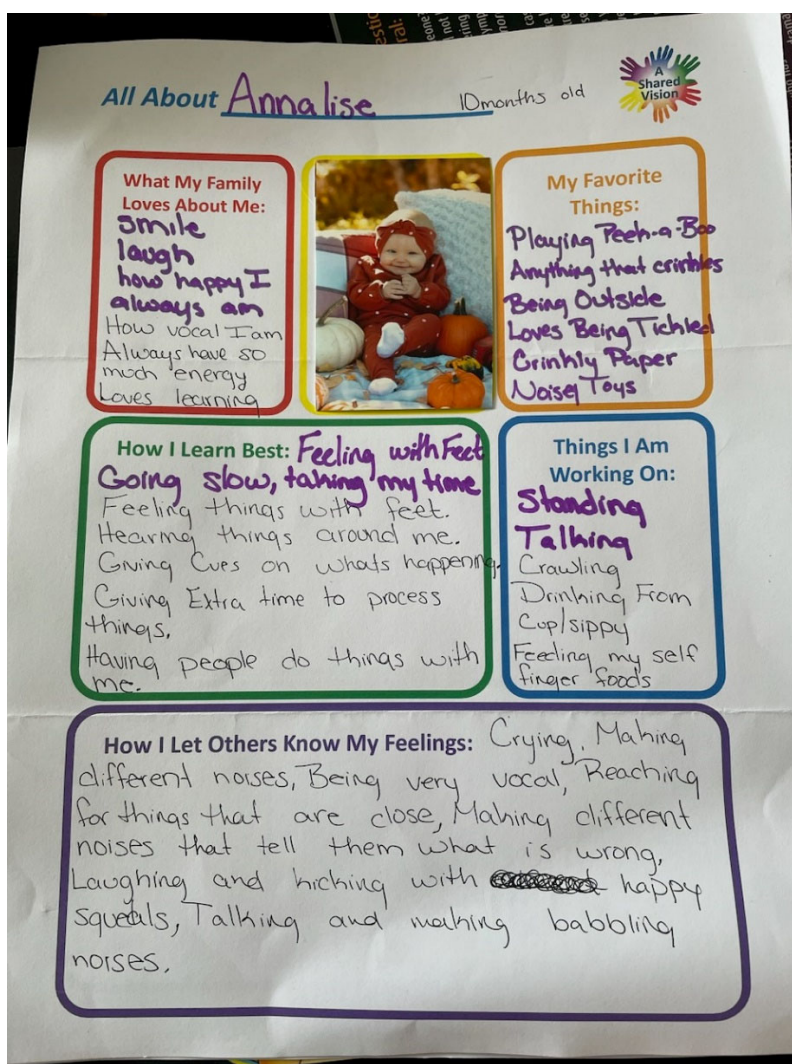 All About Annalise 10months old
A
Shared
Vision
What My Family
Loves About Me:
smile
laugh
how happy I
always am
How vocal I am
Always have so
much energy
Loves learning
My Favorite
Things:
Playing Peek-a-Boo
Anything that crinkles
Being Outside
Loves Being Tickled
Crinkly Paper
Noisey Toys
How I Learn Best: Feeling with Feet
Going slow, taking my time
Feeling things with feet.
Hearing things around me.
Giving Cues on whats happening.
Giving Extra time to process
things.
Having people do things with
me.
Things I Am
Working On:
Standing
Talking
Crawling
Drinking From
Cup/sippy
Feeding my self
finger foods
How I Let Others Know My Feelings: Crying, Making
different noises, Being very vocal, Reaching
for things that are close, Making different
noises that tell them what is wrong,
Laughing and kicking with happy
squeals, Talking and making babbling
noises.